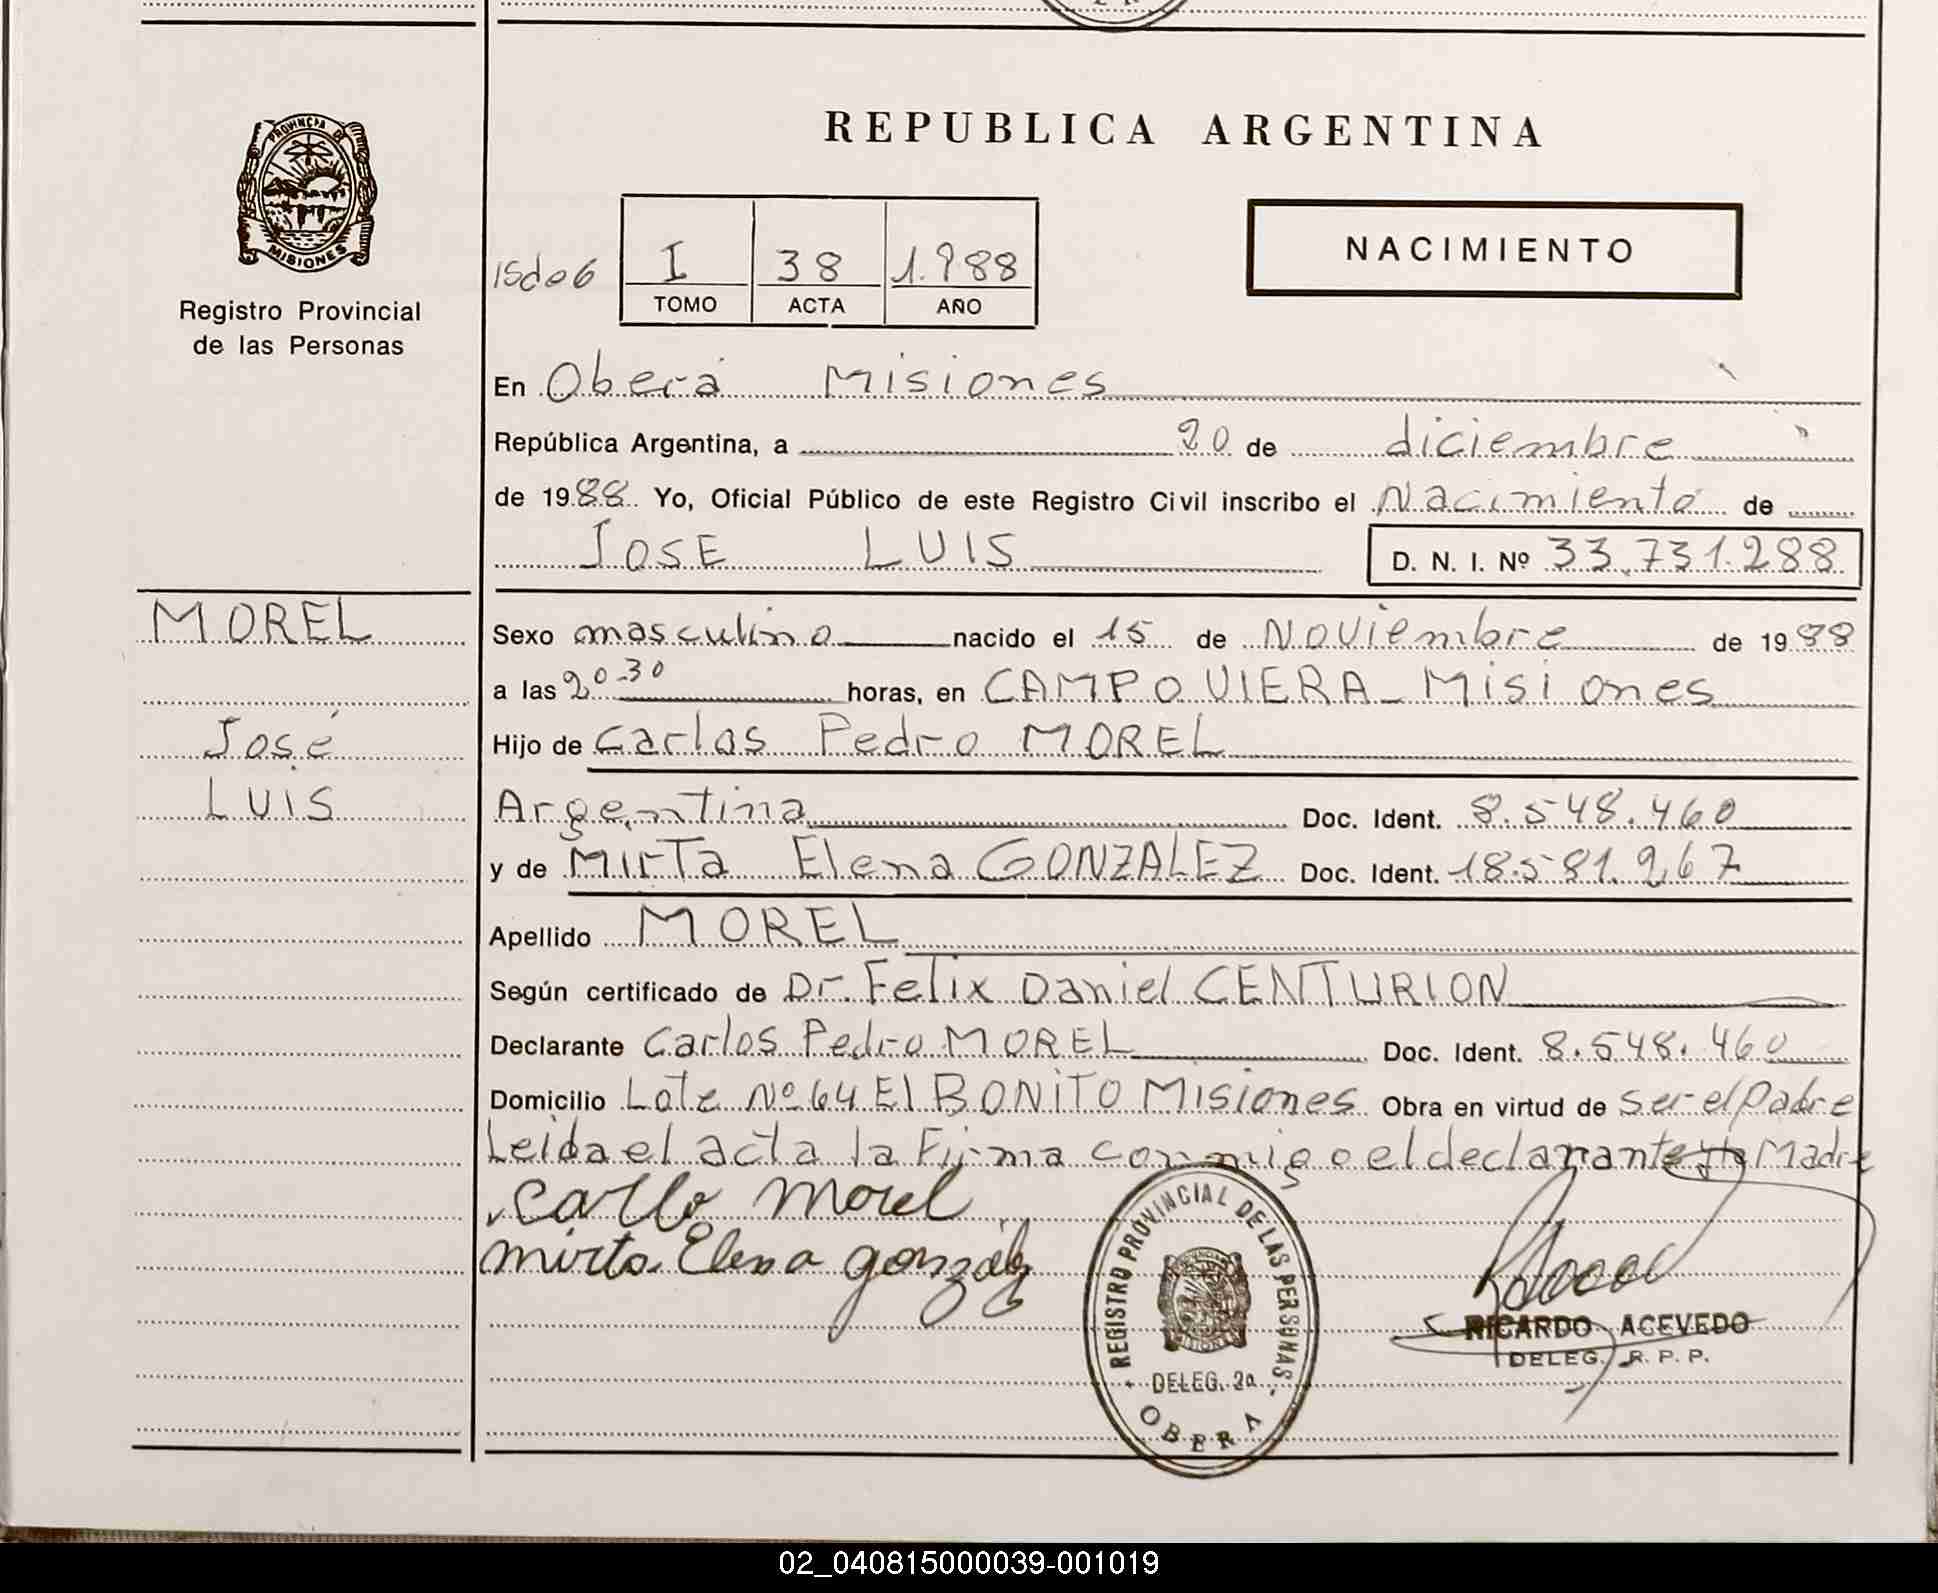 PROVINCIA DE
MISIONES
Registro Provincial
de las Personas
REPUBLICA ARGENTINA
NACIMIENTO
I 38 1.988
TOMO ACTA AÑO
En Oberá Misiones
República Argentina, a 20 de diciembre
de 1988 Yo, Oficial Público de este Registro Civil inscribo el Nacimiento de
JOSE LUIS D. N. I. Nº 33.731.288
MOREL
José
LUIS
Sexo masculino nacido el 15 de Noviembre de 1988
a las 20.30 horas, en CAMPO VIERA - Misiones
Hijo de Carlos Pedro MOREL
Argentina Doc. Ident. 8.548.460
y de Mirta Elena GONZALEZ Doc. Ident. 18.581.267
Apellido MOREL
Según certificado de Dr. Felix Daniel CENTURION
Declarante Carlos Pedro MOREL Doc. Ident. 8.548.460
Domicilio Lote Nº 64 El BONITO Misiones Obra en virtud de ser el padre
Leida el acta la Firma conmigo el declarante y la Madre
Carlo Morel
Mirta Elena González
REGISTRO PROVINCIAL DE LAS PERSONAS
DELEG. 2a
OBERA
RICARDO ACEVEDO
DELEG. R. P. P.
02_040815000039-001019